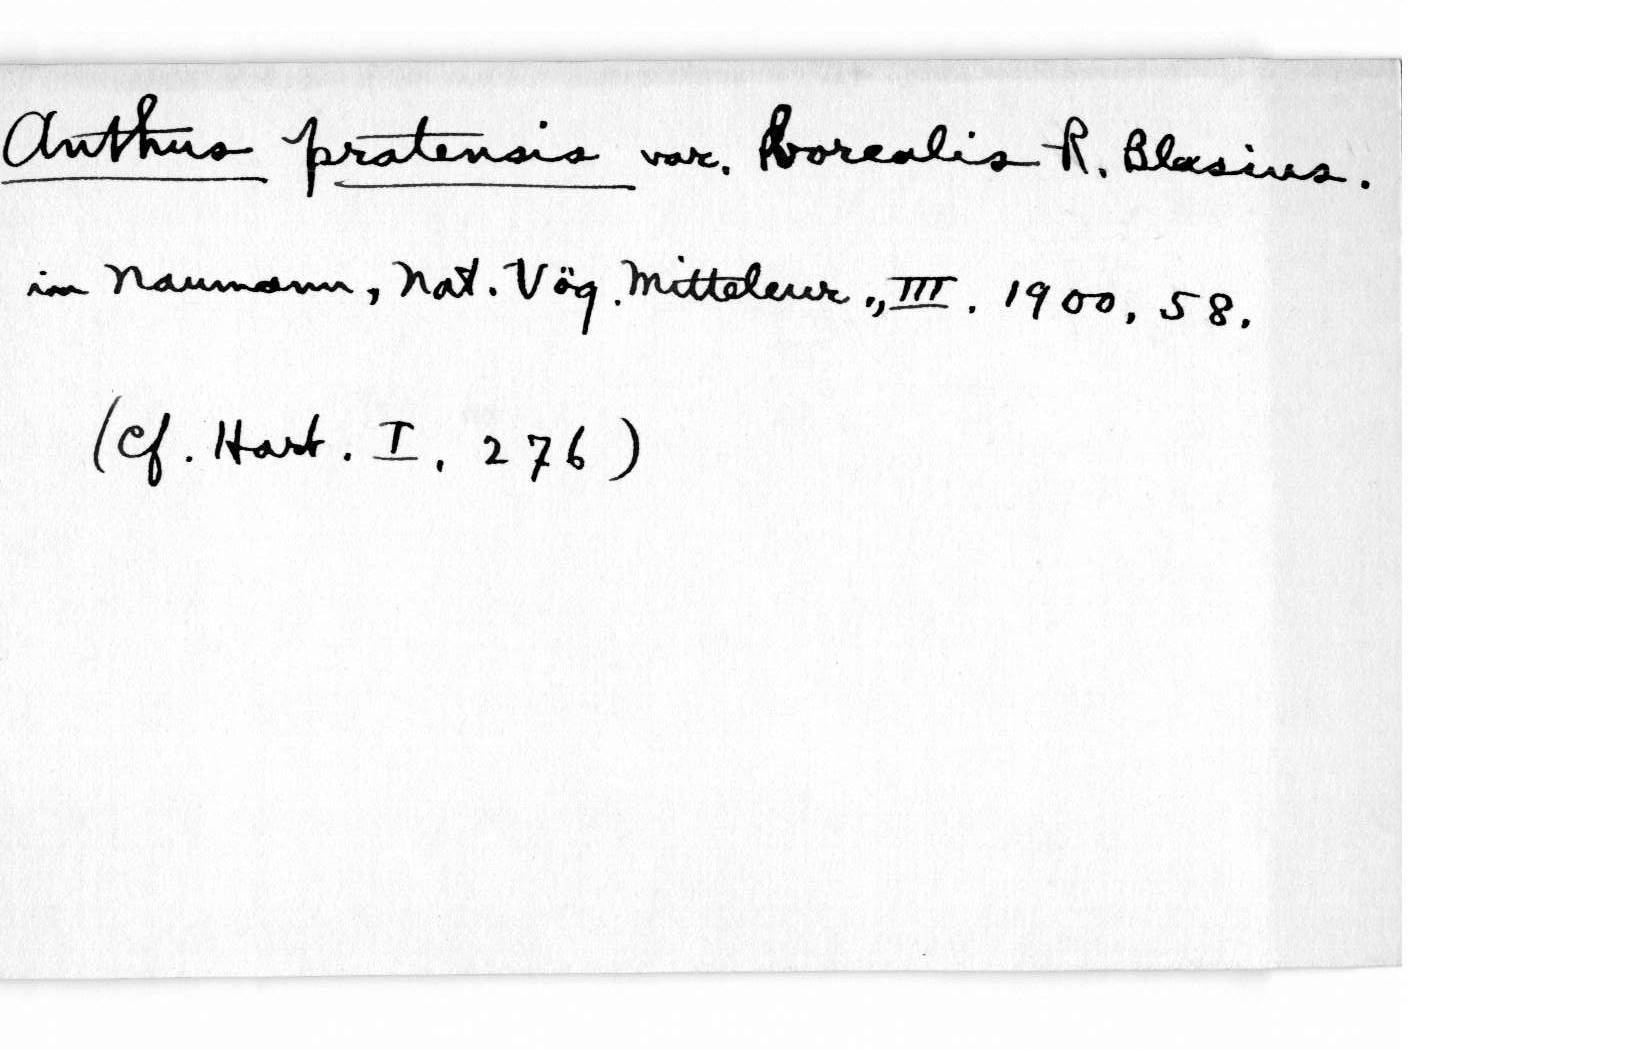 Anthus pratensis var. borealis R. Blasius.
in Naumann, Nat. Vög. Mitteleur., III. 1900, 58.
(Cf. Hart. I, 276)